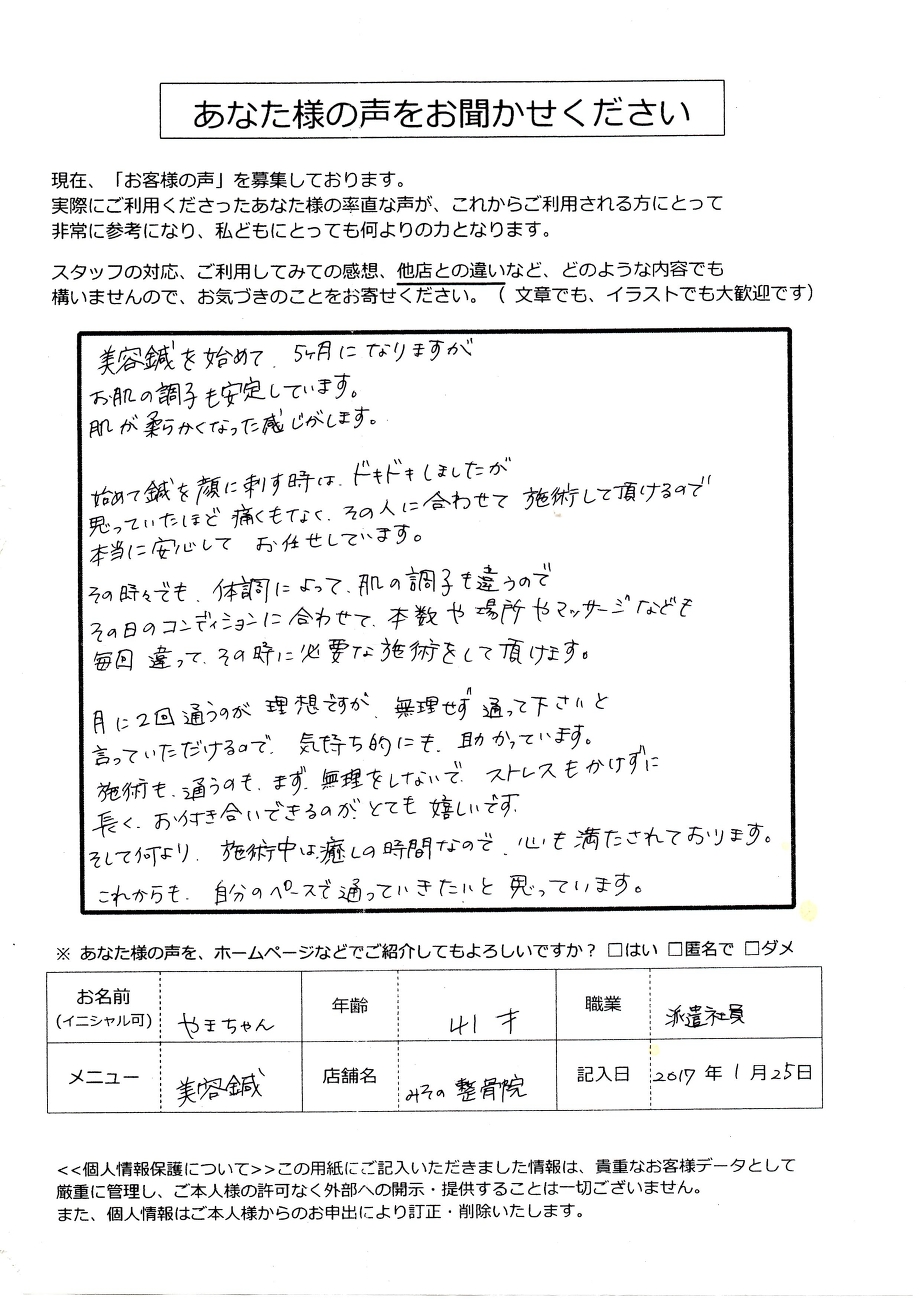 あなた様の声をお聞かせください
現在、「お客様の声」を募集しております。
実際にご利用くださったあなた様の率直な声が、これからご利用される方にとって
非常に参考になり、私どもにとっても何よりの力となります。
スタッフの対応、ご利用してみての感想、他店との違いなど、どのような内容でも
構いませんので、お気づきのことをお寄せください。（ 文章でも、イラストでも大歓迎です）
美容鍼を始めて、5ヶ月になりますが
お肌の調子も安定しています。
肌が柔らかくなった感じがします。
始めて鍼を顔に刺す時は、ドキドキしましたが
思っていたほど 痛くもなく、その人に合わせて 施術して頂けるので
本当に安心して お任せしています。
その時々でも、体調によって、肌の調子も違うので
その日のコンディションに合わせて、本数や場所やマッサージなども
毎回 違って、その時に必要な施術をして頂けます。
月に2回通うのが 理想ですが、無理せず 通って下さいと
言っていただけるので、気持ち的にも、助かっています。
施術も、通うのも、まず、無理をしないで、ストレスもかけずに
長く、お付き合いできるのが、とても 嬉しいです。
そして何より、施術中は、癒しの時間なので、心も満たされております。
これからも、自分のペースで通っていきたいと 思っています。
※ あなた様の声を、ホームページなどでご紹介してもよろしいですか？ □はい □匿名で □ダメ
お名前 (イニシャル可) やまちゃん 年齢 41才 職業 派遣社員
メニュー 美容鍼 店舗名 みその整骨院 記入日 2017年1月25日
<<個人情報保護について>>この用紙にご記入いただきました情報は、貴重なお客様データとして
厳重に管理し、ご本人様の許可なく外部への開示・提供することは一切ございません。
また、個人情報はご本人様からのお申出により訂正・削除いたします。